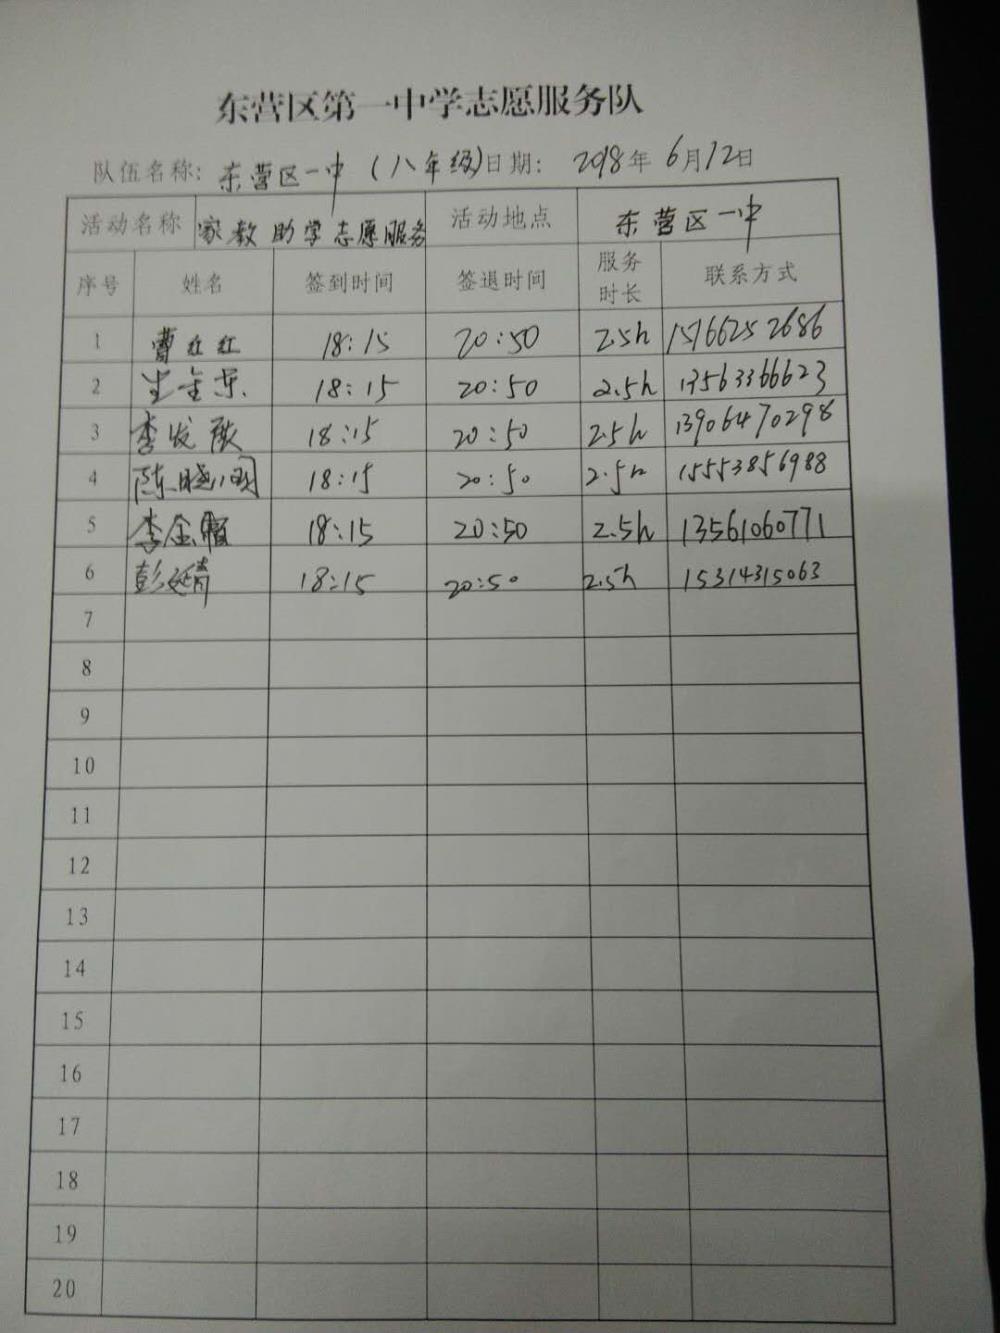 东营区第一中学志愿服务队
队伍名称: 东营区一中 (八年级) 日期: 2018年 6月12日
活动名称 家教助学志愿服务 活动地点 东营区一中
序号 姓名 签到时间 签退时间 服务时长 联系方式
1 曹红红 18:15 20:50 2.5h 15766252686
2 18:15 20:50 2.5h 13563366623
3 李发 18:15 20:50 2.5h 13906470298
4 陈晓明 18:15 20:50 2.5h 15553856988
5 李金 18:15 20:50 2.5h 13561060771
6 彭延青 18:15 20:50 2.5h 15314315063
7
8
9
10
11
12
13
14
15
16
17
18
19
20